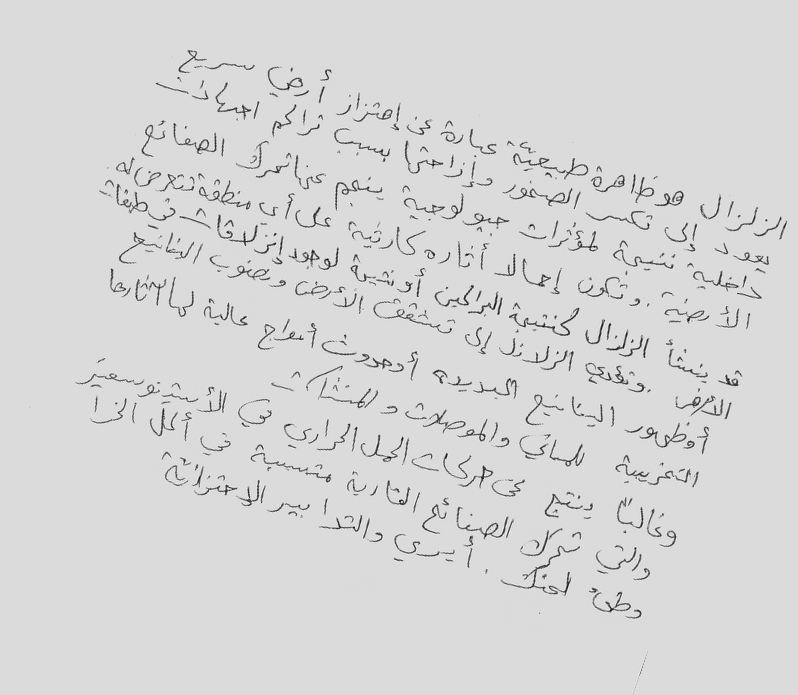 الزلزال هو ظاهرة طبيعيّة عبارة عن إهتزاز أرضي سريع
يعود إلى تكسر الصخور وإزاحتها بسبب تراكم اجهادات
داخلية نتيجة لمؤثرات جيولوجية ينجم عنها تحرك الصفائح
الأرضية . وتكون إجمالا أثاره كارثية على أي منطقة تتعرض له
قد ينشأ الزلزال كنتيجة البراكين أو نتيجة لوجود إنزلاقات في طبقات
الأرض . وتؤدي الزلازل إلى تشقق الأرض ونضوب الينابيع
أو ظهور الينابيع الجديدة أو حدوث أمواج عالية لها آثارها
التخريبية للمباني والموصلات والمنشئات
وغالبًا ينتج عن حركات الحمل الحراري في الأستينوسفير
والتي تحرك الصفائح القارية متسببة في
أيدي والتدابير الإحترازية